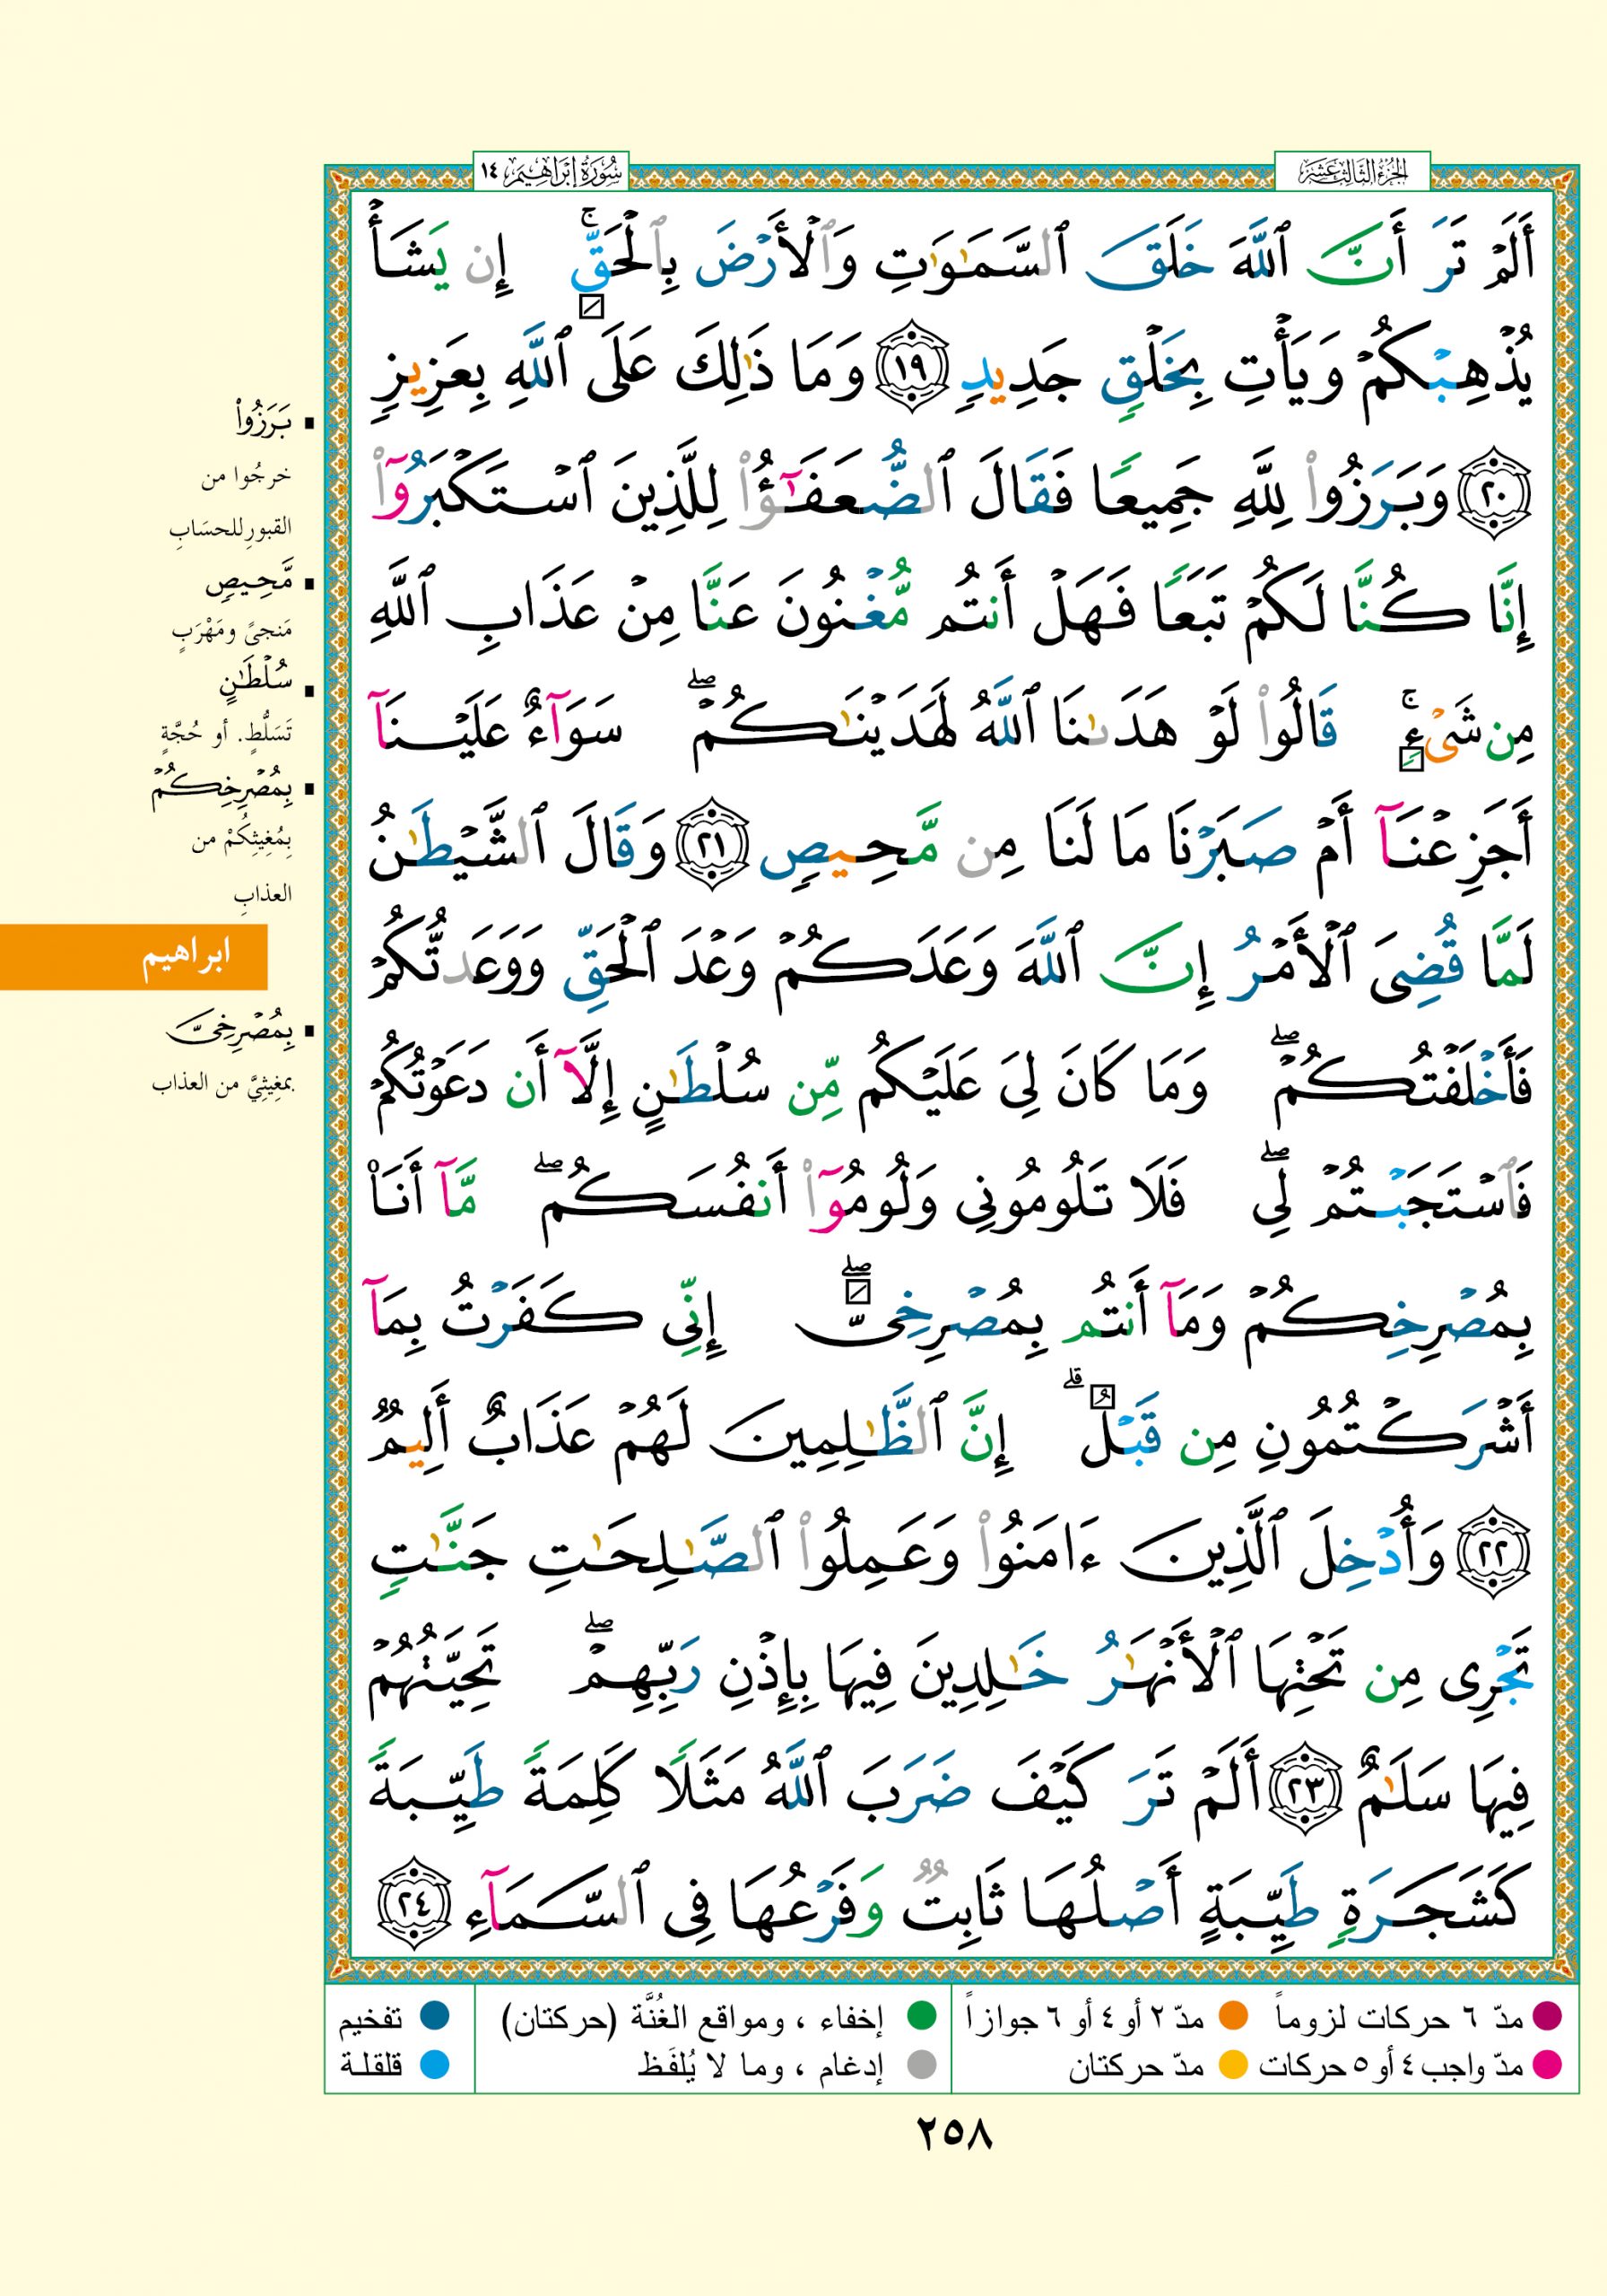 الجزء الثالث عشر
سورة إبراهيم ١٤
أَلَمْ تَرَ أَنَّ ٱللَّهَ خَلَقَ ٱلسَّمَٰوَٰتِ وَٱلْأَرْضَ بِٱلْحَقِّ ۚ إِن يَشَأْ
يُذْهِبْكُمْ وَيَأْتِ بِخَلْقٍ جَدِيدٍ ١٩ وَمَا ذَٰلِكَ عَلَى ٱللَّهِ بِعَزِيزٍ
٢٠ وَبَرَزُوا۟ لِلَّهِ جَمِيعًا فَقَالَ ٱلضُّعَفَٰٓؤُا۟ لِلَّذِينَ ٱسْتَكْبَرُوٓا۟
إِنَّا كُنَّا لَكُمْ تَبَعًا فَهَلْ أَنتُم مُّغْنُونَ عَنَّا مِنْ عَذَابِ ٱللَّهِ
مِن شَىْءٍ ۚ قَالُوا۟ لَوْ هَدَىٰنَا ٱللَّهُ لَهَدَيْنَٰكُمْ ۖ سَوَآءٌ عَلَيْنَآ
أَجَزِعْنَآ أَمْ صَبَرْنَا مَا لَنَا مِن مَّحِيصٍ ٢١ وَقَالَ ٱلشَّيْطَٰنُ
لَمَّا قُضِىَ ٱلْأَمْرُ إِنَّ ٱللَّهَ وَعَدَكُمْ وَعْدَ ٱلْحَقِّ وَوَعَدتُّكُمْ
فَأَخْلَفْتُكُمْ ۖ وَمَا كَانَ لِىَ عَلَيْكُم مِّن سُلْطَٰنٍ إِلَّآ أَن دَعَوْتُكُمْ
فَٱسْتَجَبْتُمْ لِى ۖ فَلَا تَلُومُونِى وَلُومُوٓا۟ أَنفُسَكُم ۖ مَّآ أَنَا۠
بِمُصْرِخِكُمْ وَمَآ أَنتُم بِمُصْرِخِىَّ ۖ إِنِّى كَفَرْتُ بِمَآ
أَشْرَكْتُمُونِ مِن قَبْلُ ۗ إِنَّ ٱلظَّٰلِمِينَ لَهُمْ عَذَابٌ أَلِيمٌ
٢٢ وَأُدْخِلَ ٱلَّذِينَ ءَامَنُوا۟ وَعَمِلُوا۟ ٱلصَّٰلِحَٰتِ جَنَّٰتٍ
تَجْرِى مِن تَحْتِهَا ٱلْأَنْهَٰرُ خَٰلِدِينَ فِيهَا بِإِذْنِ رَبِّهِمْ ۖ تَحِيَّتُهُمْ
فِيهَا سَلَٰمٌ ٢٣ أَلَمْ تَرَ كَيْفَ ضَرَبَ ٱللَّهُ مَثَلًا كَلِمَةً طَيِّبَةً
كَشَجَرَةٍ طَيِّبَةٍ أَصْلُهَا ثَابِتٌ وَفَرْعُهَا فِى ٱلسَّمَآءِ ٢٤
بَرَزُوا۟
خرجُوا من
القبورِ للحسَابِ
مَّحِيصٍ
مَنجىً ومَهْرَبٍ
سُلْطَٰنٍ
تَسَلُّطٍ. أو حُجَّةٍ
بِمُصْرِخِكُمْ
بِمُغِيثِكُمْ من
العذابِ
ابراهيم
بِمُصْرِخِىَّ
بمغِيثِيَّ من العذاب.
مدّ ٦ حركات لزوماً
مدّ ٢ أو ٤ أو ٦ جوازاً
إخفاء ، ومواقع الغُنَّة (حركتان)
تفخيم
مدّ واجب ٤ أو ٥ حركات
مدّ حركتان
إدغام ، وما لا يُلفَظ
قلقلة
٢٥٨